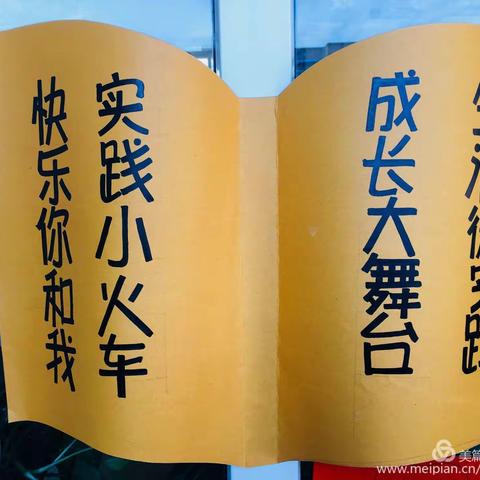 生活实践
成长大舞台
实践小火车
快乐你和我
美篇
www.meipian.cn/